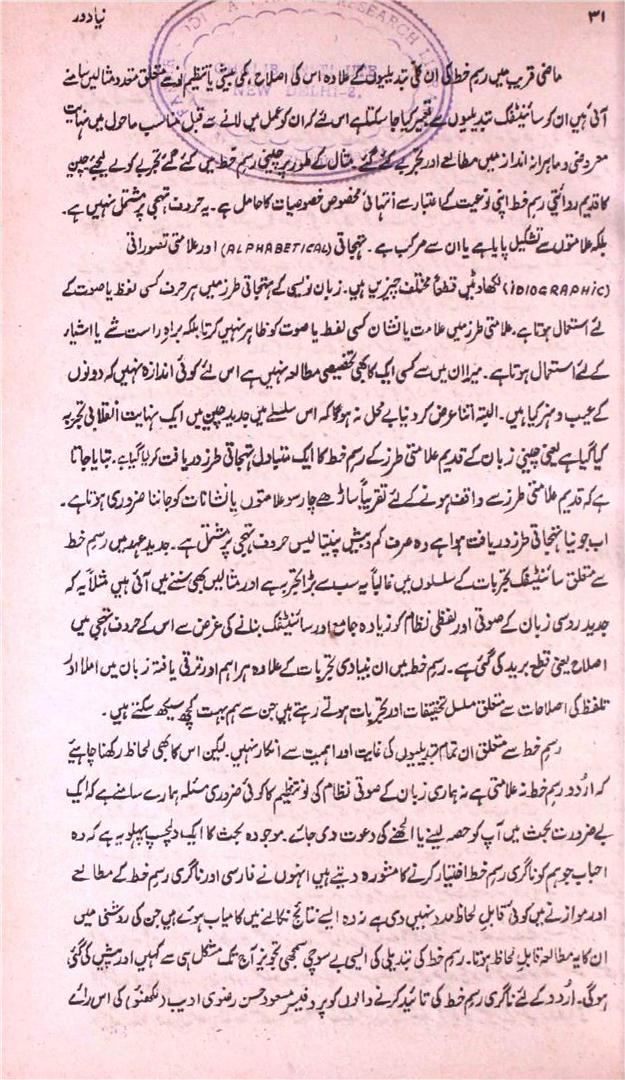 ۳۱
نیا دور
ماضی قریب میں رسم خط کی ان کلی تبدیلیوں کے علاوہ اس کی اصلاح، کمی بیشی یا تنظیم نو سے متعلق متعدد مثالیں سامنے
آئی ہیں ان کو سائنٹیفک تبدیلیوں سے تعبیر کیا جا سکتا ہے اس لئے کہ ان کو عمل میں لانے سے قبل مناسب ماحول میں نہایت
معروضی و ماہرانہ انداز میں مطالعے اور تجربے کئے گئے۔ مثال کے طور پر چینی رسم خط میں کئے گئے تجربے کو لے لیجئے چین
کا قدیم روائتی رسم خط اپنی نوعیت کے اعتبار سے انتہائی مخصوص خصوصیات کا حامل ہے۔ یہ حروف تہجی پر مشتمل نہیں ہے۔
بلکہ علامتوں سے تشکیل پایا ہے یا ان سے مرکب ہے۔ تہجاتی (ALPHABETICAL) اور علامتی تصوراتی
(IDIOGRAPHIC) لکھاوٹیں قطعاً مختلف چیزیں ہیں۔ زبان نویسی کے تہجاتی طرز میں ہر حرف کسی لفظ یا صوت کے
لئے استعمال ہوتا ہے۔ علامتی طرز میں علامت یا نشان کسی لفظ یا صوت کو ظاہر نہیں کرتا بلکہ براہِ راست شے یا اشیاء
کے لئے استعمال ہوتا ہے۔ میرا ان میں سے کسی ایک کا بھی تخصیصی مطالعہ نہیں ہے اس لئے کوئی اندازہ نہیں کہ دونوں
کے عیب و ہنر کیا ہیں۔ البتہ اتنا عرض کر دینا بے محل نہ ہوگا کہ اس سلسلے میں جدید چین میں ایک نہایت انقلابی تجربہ
کیا گیا ہے یعنی چینی زبان کے قدیم علامتی طرز کے رسم خط کا ایک متبادل تہجاتی طرز دریافت کر لیا گیا ہے۔ بتایا جاتا
ہے کہ قدیم علامتی طرز سے واقف ہونے کے لئے تقریباً ساڑھے چار سو علامتوں یا نشانات کو جاننا ضروری ہوتا ہے۔
اب جو نیا تہجاتی طرز دریافت ہوا ہے وہ صرف کم و بیش پینتالیس حروف تہجی پر مشتمل ہے۔ جدید عہد میں رسم خط
سے متعلق سائنٹیفک تجربات کے سلسلوں میں غالباً یہ سب سے بڑا تجربہ ہے اور مثالیں بھی سننے میں آئی ہیں مثلاً یہ کہ
جدید روسی زبان کے صوتی اور لفظی نظام کو زیادہ جامع اور سائنٹیفک بنانے کی غرض سے اس کے حروف تہجی میں
اصلاح یعنی قطع برید کی گئی ہے۔ رسم خط میں ان بنیادی تجربات کے علاوہ ہر اہم اور ترقی یافتہ زبان میں املا اور
تلفظ کی اصلاحات سے متعلق مسلسل تحقیقات اور تجربات ہوتے رہتے ہیں جن سے ہم بہت کچھ سیکھ سکتے ہیں۔
رسم خط سے متعلق ان تمام تبدیلیوں کی غایت اور اہمیت سے انکار نہیں۔ لیکن اس کا بھی لحاظ رکھنا چاہیئے
کہ اُردو رسم خط نہ علامتی ہے نہ ہماری زبان کے صوتی نظام کی نو تنظیم کا کوئی ضروری مسئلہ ہمارے سامنے ہے کہ ایک
بے ضرورت بحث میں آپ کو حصہ لینے یا الجھنے کی دعوت دی جائے۔ موجودہ بحث کا ایک دلچسپ پہلو یہ ہے کہ وہ
احباب جو ہم کو ناگری رسم خط اختیار کرنے کا مشورہ دیتے ہیں انہوں نے فارسی اور ناگری رسم خط کے مطالعے
اور موازنے میں کوئی قابلِ لحاظ مدد نہیں دی ہے نہ وہ ایسے نتائج نکالنے میں کامیاب ہوئے ہیں جن کی روشنی میں
ان کا یہ مطالعہ قابلِ لحاظ ہوتا۔ رسم خط کی تبدیلی کی ایسی بے سوچی سمجھی تجویز آج تک مشکل ہی سے کہیں اور پیش کی گئی
ہوگی۔ اُردو کے لئے ناگری رسم خط کی تائید کرنے والوں کو پروفیسر مسعود حسن رضوی ادیب (لکھنؤ) کی اس رائے